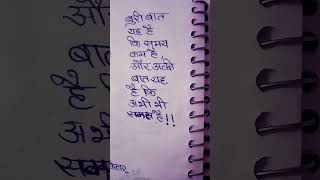 बुरी बात
यह है
कि समय
कम है
और अच्छी
बात यह
है कि
अभी भी
समय है!!